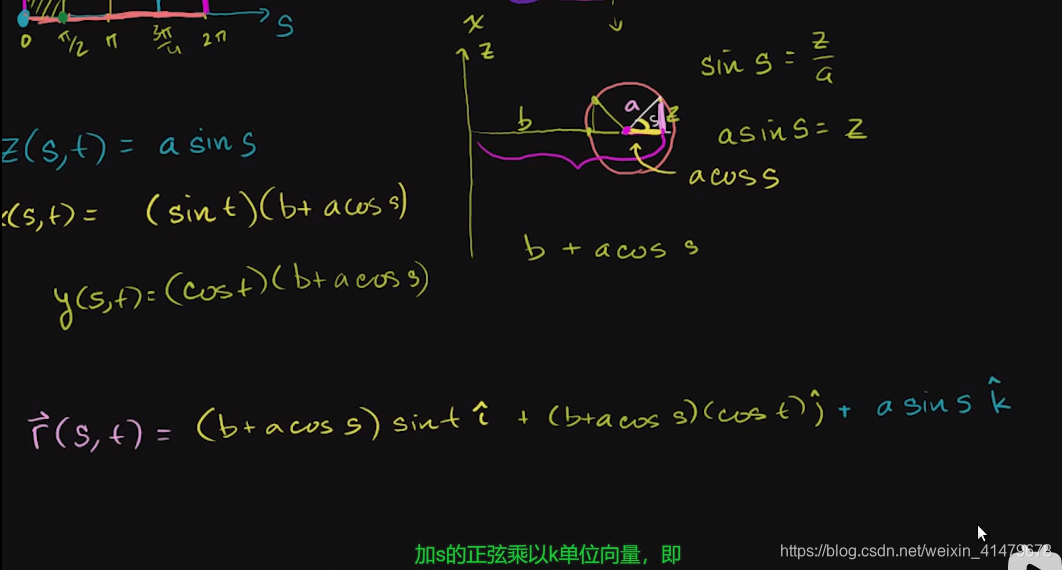 S
0 π/2 π 3π/4 2π
x
z
b
a
s
z
sin s = z/a
a sin s = z
a cos s
b + a cos s
z(s,t) = a sin s
(s,t) = (sin t)(b + a cos s)
y(s,t) = (cos t)(b + a cos s)
r⃗(s,t) = (b + a cos s) sin t î + (b + a cos s)(cos t) ĵ + a sin s k̂
加s的正弦乘以k单位向量，即
https://blog.csdn.net/weixin_41479678